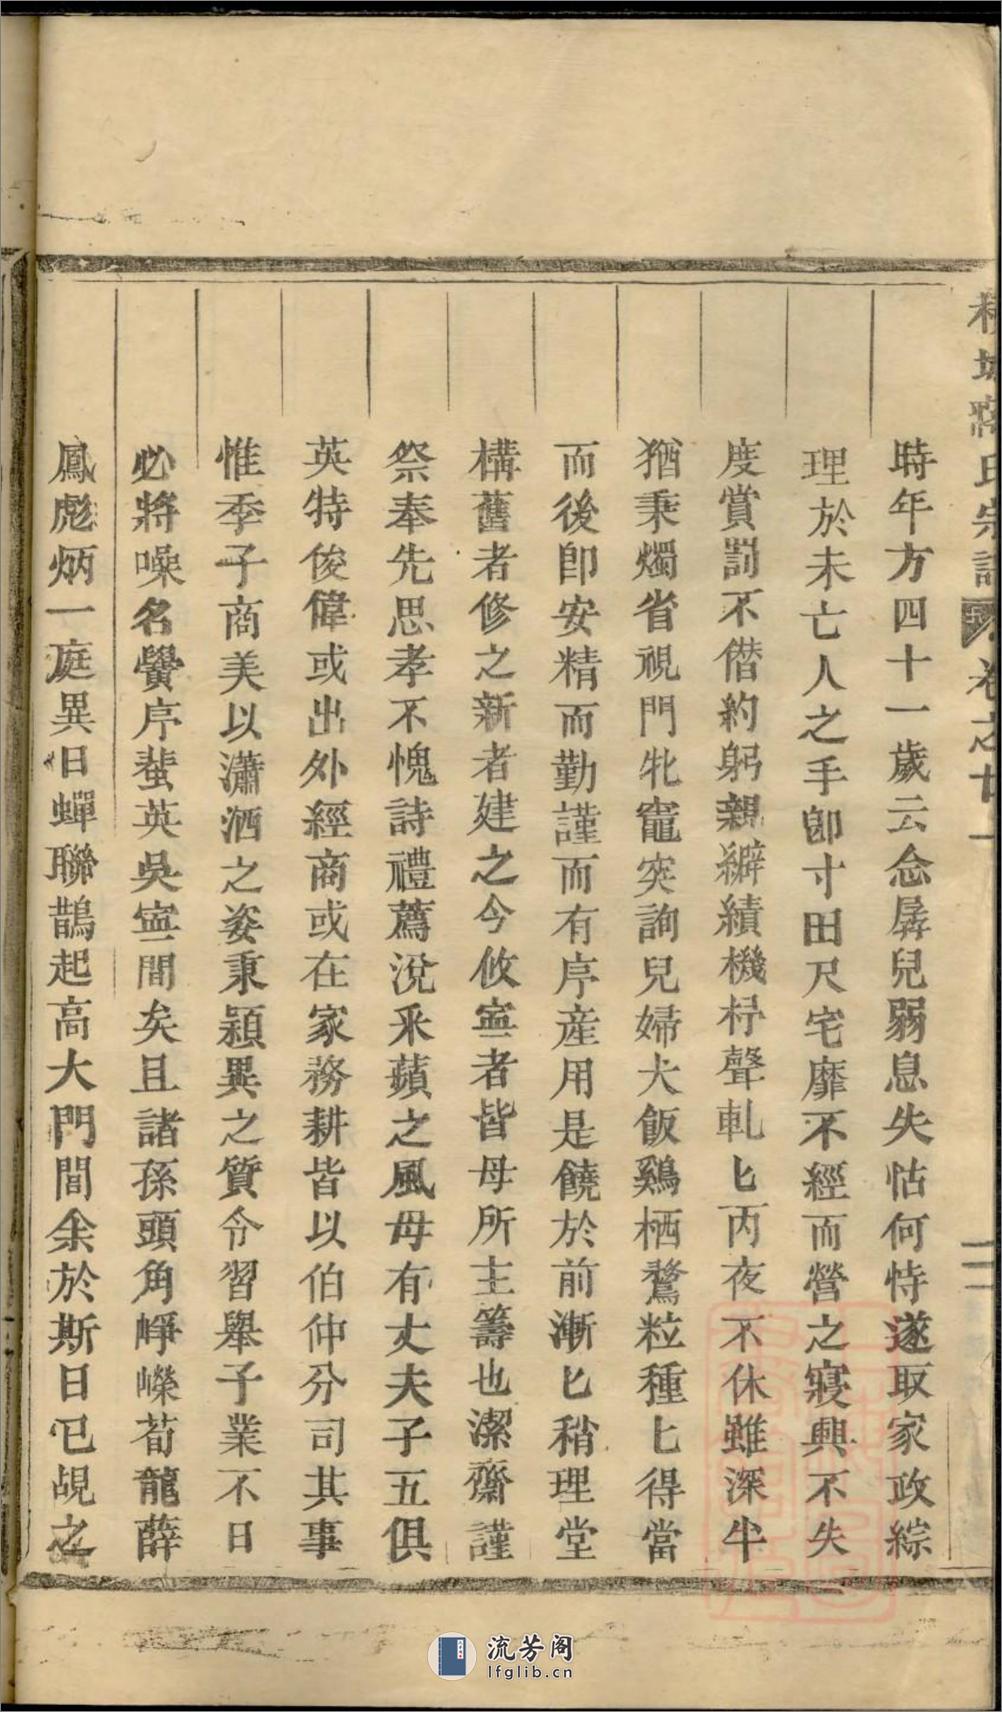 時年方四十一歲云念孱兒弱息失怙何恃遂取家政綜
理於未亡人之手卽寸田尺宅靡不經而營之寢興不失
度賞罰不僭約躬親纑績機杼聲軋匕丙夜不休雖深半
猶秉燭省視門牝竈突詢兒婦犬飯鷄栖鶩粒種匕得當
而後卽安精而勤謹而有序産用是饒於前漸匕稍理堂
構舊者修之新者建之今攸寧者皆母所主籌也潔齋謹
祭奉先思孝不愧詩禮薦涗釆蘋之風母有丈夫子五俱
英特俊偉或出外經商或在家務耕皆以伯仲分司其事
惟季子商美以瀟洒之姿秉穎異之質令習舉子業不日
必將噪名黌序蜚英吳寧間矣且諸孫頭角崢嶸荀龍薛
鳳彪炳一庭異日蟬聯鵲起高大門閭余於斯日已覘之
城蔣氏宗譜 卷之廿一
二
流芳阁
lfglib.cn